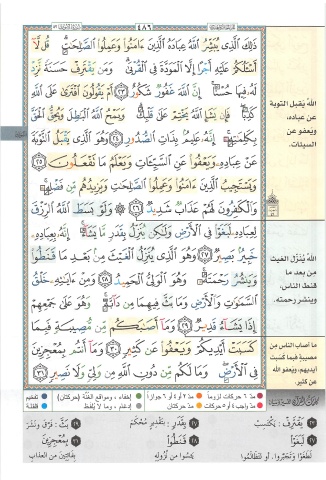 ٤٨٦
ذَٰلِكَ ٱلَّذِى يُبَشِّرُ ٱللَّهُ عِبَادَهُ ٱلَّذِينَ ءَامَنُوا۟ وَعَمِلُوا۟ ٱلصَّٰلِحَٰتِ ۗ قُل لَّآ
أَسْـَٔلُكُمْ عَلَيْهِ أَجْرًا إِلَّا ٱلْمَوَدَّةَ فِى ٱلْقُرْبَىٰ ۗ وَمَن يَقْتَرِفْ حَسَنَةً نَّزِدْ
لَهُۥ فِيهَا حُسْنًا ۚ إِنَّ ٱللَّهَ غَفُورٌ شَكُورٌ ٢٣ أَمْ يَقُولُونَ ٱفْتَرَىٰ عَلَى ٱللَّهِ
كَذِبًا ۖ فَإِن يَشَإِ ٱللَّهُ يَخْتِمْ عَلَىٰ قَلْبِكَ ۗ وَيَمْحُ ٱللَّهُ ٱلْبَٰطِلَ وَيُحِقُّ ٱلْحَقَّ
بِكَلِمَٰتِهِۦٓ ۚ إِنَّهُۥ عَلِيمٌۢ بِذَاتِ ٱلصُّدُورِ ٢٤ وَهُوَ ٱلَّذِى يَقْبَلُ ٱلتَّوْبَةَ
عَنْ عِبَادِهِۦ وَيَعْفُوا۟ عَنِ ٱلسَّيِّـَٔاتِ وَيَعْلَمُ مَا تَفْعَلُونَ ٢٥
وَيَسْتَجِيبُ ٱلَّذِينَ ءَامَنُوا۟ وَعَمِلُوا۟ ٱلصَّٰلِحَٰتِ وَيَزِيدُهُم مِّن فَضْلِهِۦ ۚ
وَٱلْكَٰفِرُونَ لَهُمْ عَذَابٌ شَدِيدٌ ٢٦ ۞ وَلَوْ بَسَطَ ٱللَّهُ ٱلرِّزْقَ
لِعِبَادِهِۦ لَبَغَوْا۟ فِى ٱلْأَرْضِ وَلَٰكِن يُنَزِّلُ بِقَدَرٍ مَّا يَشَآءُ ۚ إِنَّهُۥ بِعِبَادِهِۦ
خَبِيرٌۢ بَصِيرٌ ٢٧ وَهُوَ ٱلَّذِى يُنَزِّلُ ٱلْغَيْثَ مِنۢ بَعْدِ مَا قَنَطُوا۟
وَيَنشُرُ رَحْمَتَهُۥ ۚ وَهُوَ ٱلْوَلِىُّ ٱلْحَمِيدُ ٢٨ وَمِنْ ءَايَٰتِهِۦ خَلْقُ
ٱلسَّمَٰوَٰتِ وَٱلْأَرْضِ وَمَا بَثَّ فِيهِمَا مِن دَآبَّةٍ ۚ وَهُوَ عَلَىٰ جَمْعِهِمْ
إِذَا يَشَآءُ قَدِيرٌ ٢٩ وَمَآ أَصَٰبَكُم مِّن مُّصِيبَةٍ فَبِمَا
كَسَبَتْ أَيْدِيكُمْ وَيَعْفُوا۟ عَن كَثِيرٍ ٣٠ وَمَآ أَنتُم بِمُعْجِزِينَ
فِى ٱلْأَرْضِ ۖ وَمَا لَكُم مِّن دُونِ ٱللَّهِ مِن وَلِىٍّ وَلَا نَصِيرٍ ٣١
الله يقبل التوبة
عن عباده،
ويعفو عن
السيئات.
الله يُنَزِّل الغيث
من بعد ما
قنط الناس،
وينشر رحمته.
ما أصاب الناس من
مصيبة فبما كسبت
أيديهم، ويعفو الله
عن كثير.
مد ٦ حركات لزوماً مد ٢ أو ٤ أو ٦ جوازاً إخفاء، ومواقع الغنّة (حركتان) تفخيم
مد واجب ٤ أو ٥ حركات مد حركتان إدغام، وما لا يُلفظ قلقلة
٢٣ يَقْتَرِفْ: يَكْتَسِبْ ٢٧ بِقَدَرٍ: بِتَقْدِيرٍ مُحْكَمٍ ٢٩ بَثَّ: فَرَّقَ وَنَشَرَ
٢٧ لَبَغَوْا ٢٨ قَنَطُوا ٣١ بِمُعْجِزِينَ
لَطَغَوْا وَتَجَبَّرُوا، أو لَظَلَمُوا يَئِسُوا مِن نُزُولِهِ بِفَائِتِينَ مِنَ العذابِ